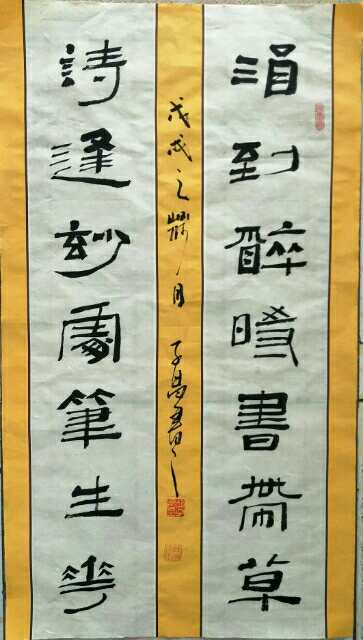 酒到醉時書帶草
詩逢妙處筆生花
戊戌之月
書之